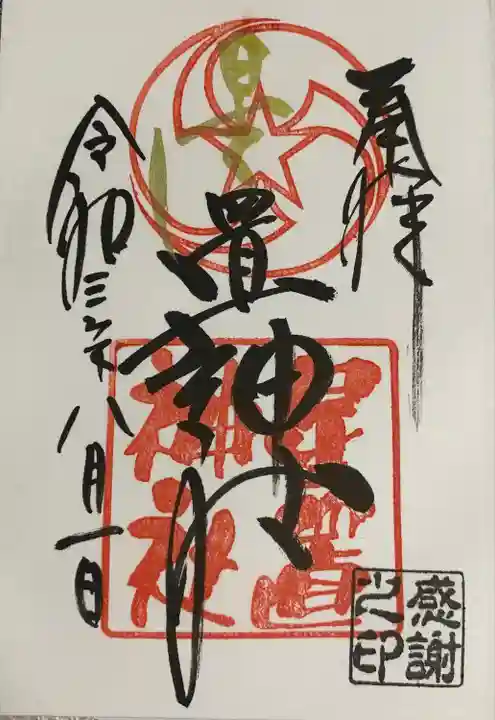 奉拝
星置神社
令和三年八月一日
星置
神社
感謝
之印